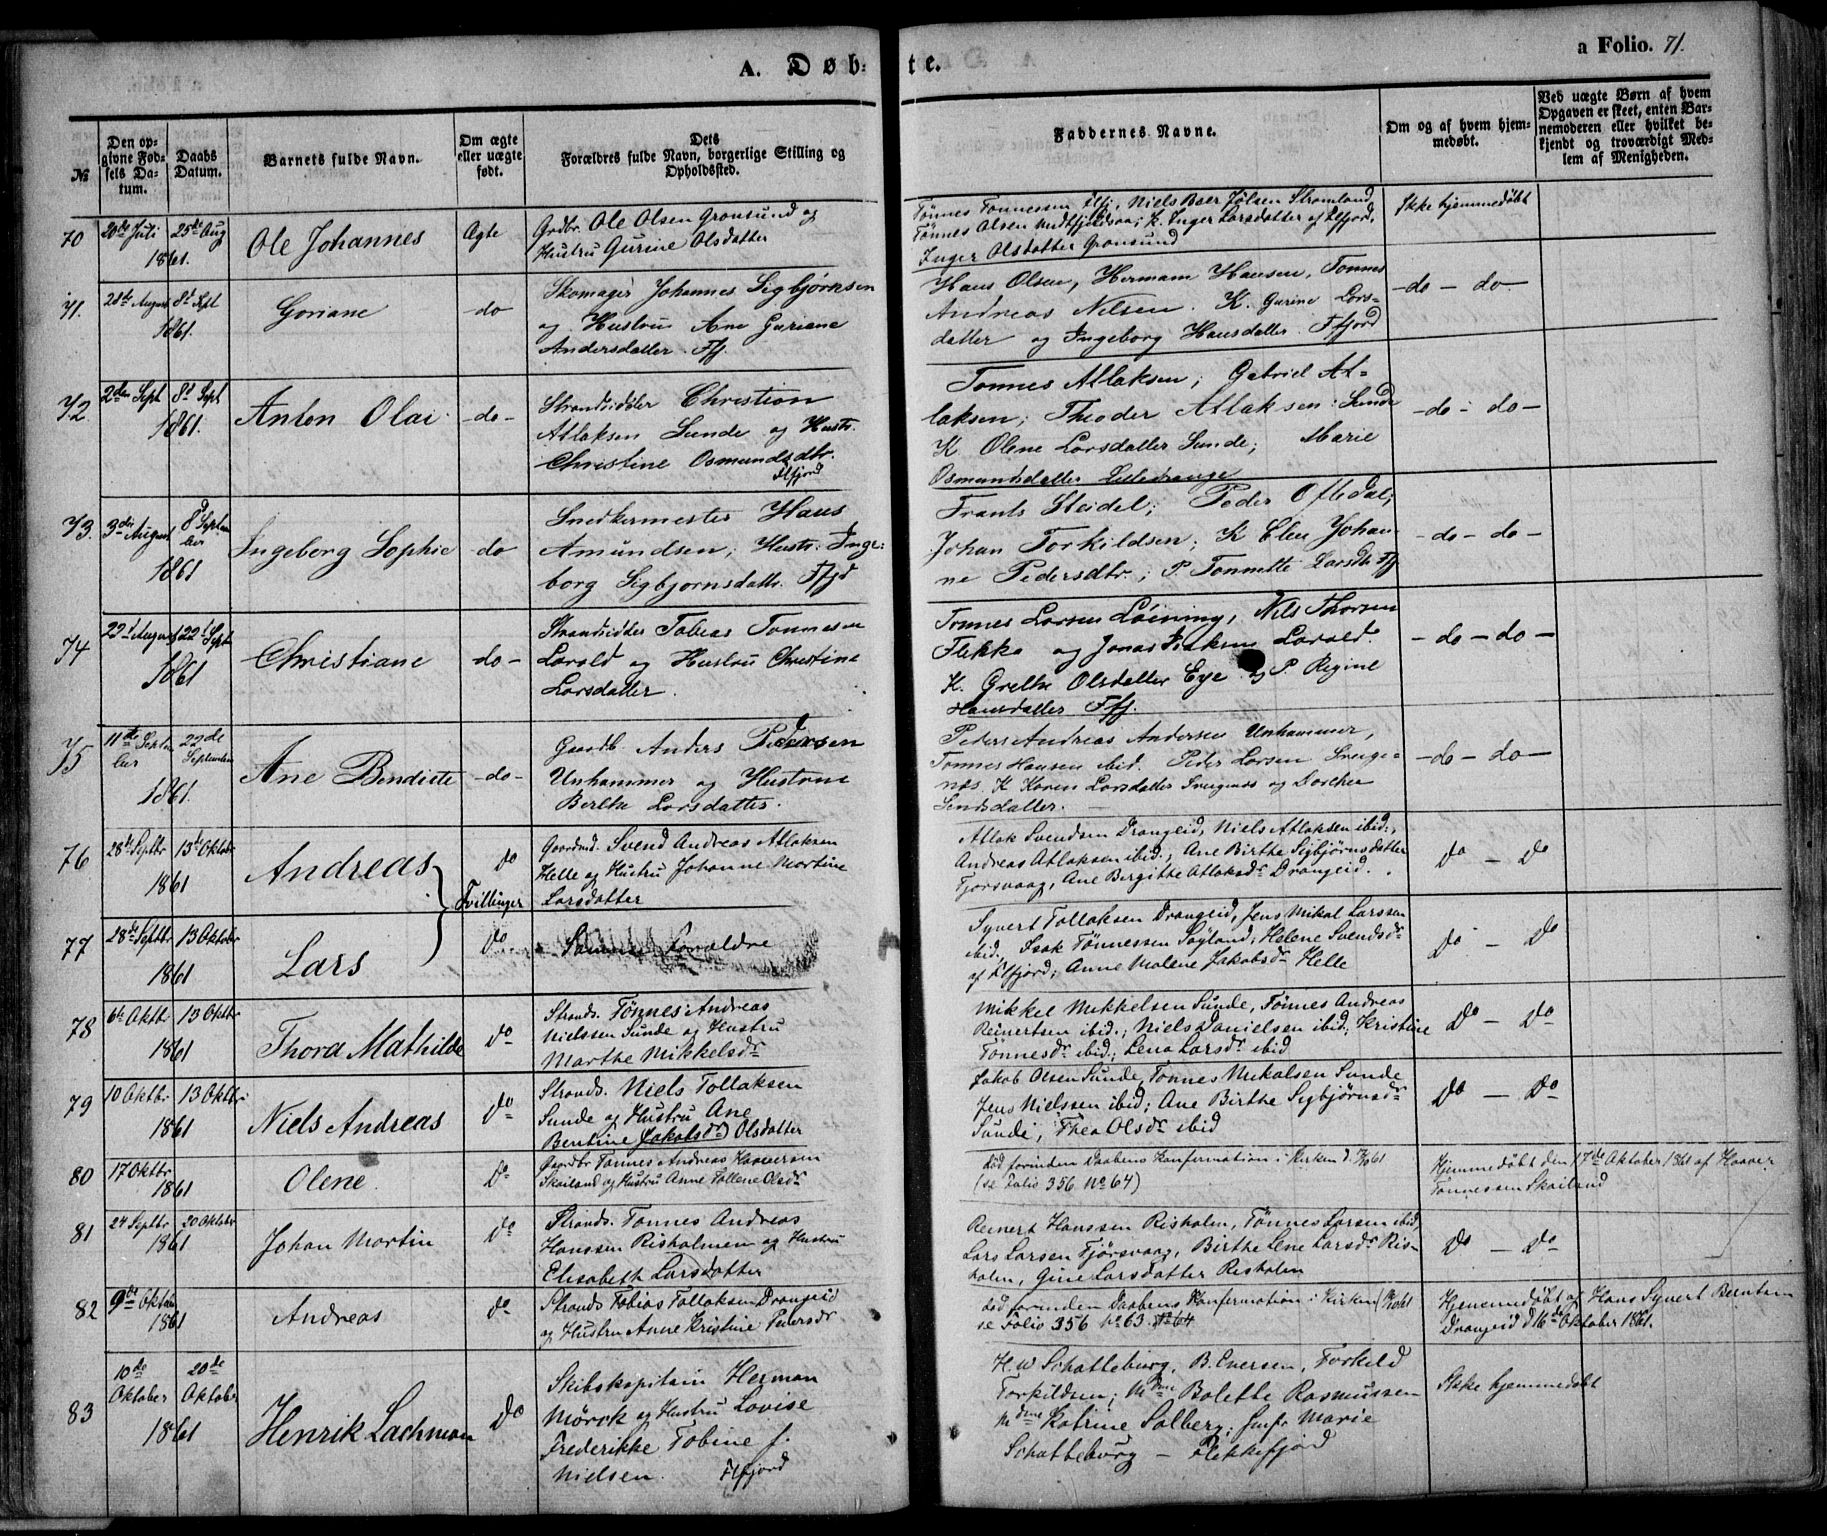 A. Døbte.
a Folio. 71.
No
Den opgivne Fødsels Datum.
Daabs Datum.
Barnets fulde Navn.
Om ægte eller uægte født.
Dets Forældres fulde Navn, borgerlige Stilling og Opholdssted.
Faddernes Navne.
Om og af hvem hjemmedøbt.
Ved uægte Børn af hvem Opgaven er skeet, enten Barnemoderen eller hvilket bekjendt og troværdigt Medlem af Menigheden.
70 20de Juli 1861. 25de Aug Ole Johannes Ægte
Grdbr. Ole Olsen Gronsund og
Hustru Gurine Olsdatter
Tønnes Tonnessen Flfj, Niels Baer Jølsen Stromland
Tønnes Olsen K. Inger Larsdatter af Flfjord,
Inger Olsdatter Gronsund
Ikke hjemmedøbt
71. 21de August 8de Sept 1861. Goriane do
Skomager Johannes Sigbjørnsen
og Hustru Ane Guriane
Andersdatter. Ffj.
Hans Olsen, Hermann Hansen, Tonnes
Andreas Nilsen. K. Gurine Lars-
datter og Ingeborg Hansdatter. Ffjord
do - do
72. 2den Sept 8de Sept 1861. Anton Olai do
Strandsidder Christian
Atlaksen Sunde og Hustr.
Christine Osmundsdtr.
Flfjord
Tonnes Atlaksen; Gabriel At-
laksen; Theoder Atlaksen Sunde
K Olene Larsdatter Sunde; Marie
Osmundsdatter Lilledrange
do - do
73. 3die August 8d September 1861 Ingeborg Sophie do
Snedkermester Hans
Amundsen; Hustr: Inge-
borg Sigbjornsdatr. Ffjd
Frants Steidel; Peder Oftedal;
Johan Torkildsen; K Elen Johan-
ne Pedersdtr.; P. Tonnette Larsdtr Ffj
do - do
74 22d August 22d Sept 1861 Christiane do
Strandsidder Tobias Tonnesen
Lavold og Hustru Christine
Larsdatter.
Tonnes Larsen Løining, Nils Thorsen
Flikka og Jonas Lavold.
K. Grethe Olsdatter Eye og P. Regine
Hansdatter Ffj.
do - do
75 11de September 22de September 1861. Ane Bendicte do
Gaardb Anders Pedersen
Unhammer og Hustrue
Berthe Larsdatter.
Peder Andreas Andersen Unhammer,
Tonnes Hansen ibid. Peder Larsen Snege-
næs. K Karen Larsdatter Snegenæs og Dorthea
Sendsdatter.
do - do
76 28de Septbr 13de Oktobr 1861 Andreas do
Tvillinger
Gaardmd. Svend Andreas Atlaksen
Helle og Hustru Johanne Martine
Larsdatter
Atlak Svendsen Drangeid, Niels Atlaksen ibid.,
Andreas Atlaksen ibid.; Ane Birthe Sigbjørnsdatter
Fjorsvaag, Ane Bergitte Atlaksdr Drangeid.
do - do
77 28de Septbr 13 Oktobr 1861 Lars do
Samme Forældre
Syvert Tollaksen Drangeid, Jens Mikal Larssen
ibid, Isak Tønnessen Søyland; Helene Svendsdr
af Flfjord; Anne Malene Jakobsdr Helle
do - do
78 6te Oktbr 13 Oktbr 1861 Thora Mathilde do
Strands. Tønnes Andreas
Nielssen Sunde og Hustru
Marthe Mikkelsdr
Mikkel Mikkelsen Sunde, Tønnes Andreas
Reinertsen ibid.; Niels Danielsen ibid; Kristine
Tønnesdr ibid; Lena Larsdr ibid
do - do
79 10 Oktbr 13 Oktbr 1861 Niels Andreas do
Strands. Niels Tollaksen
Sunde og Hustru Ane
Bentine (Jakobsdr) Olsdatter
Jakob Olsen Sunde, Tonnes Mikalsen Sunde
Jens Nielssen ibid; Ane Birthe Sigbjørnsdr
Sunde, Thea Olsdr ibid
do - do
80 17 Oktbr 1861 Olene do
Gaardbr Tonnes Andreas Haaversen
Skailand og Hustru Anne Tollene Olsdr
død forinden Daabens Konfirmation i Kirken
(se Folio 356 No 64)
Hjemmedøbt den 17de Oktober 1861 af Haaver
Tonnessen Skailand
81 24 Septbr 20 Oktobr 1861 Johan Martin do
Strands. Tonnes Andreas
Hanssen Risholmen og Hustru
Elisabeth Larsdatter
Reinert Hanssen Risholm, Tønnes Larsen ibid,
Lars Larsen Fjørsvaag, Birthe Lene Larsdr Ris-
holm, Gine Larsdatter Risholm
do - do
82 9de Oktobr 1861 Andreas do
Strands Tobias Tollaksen Drangeid
og Hustru Anne Kristine Pedersdr
død forinden Daabens Konfirmation i Kirken
se Folio 356 No 63.
Hjemmedøbt af Hans Syvert Berntsen
Drangeid d 16de Oktober 1861.
83 10de Oktober 20de Oktober 1861 Henrik Lachman do
Skibskapitain Herman
Mørck og Hustru Lovise
Frederikke Tobine f.
Nielsen. Flfjord
H. W Schatteburg, B. Eversen, Torkild
Torkildsen; Mdme Bolette Rasmussen
Mdme Katrine Salberg; Jmfr Marie
Schatteburg - Flekkefjord
Ikke hjemmedøbt